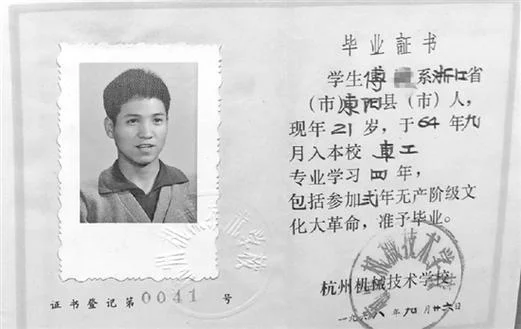 毕业証书
学生傅 系浙江省
(市)東阳县(市)人,
现年21岁,于64年九
月入本校 車工
专业学习四年,
包括参加弍年无产阶级文
化大革命,准予毕业。
杭州机械技术学校
一九六八年九月廿六日
証书登记第0041号
机械技术学校
杭州机械技术学校